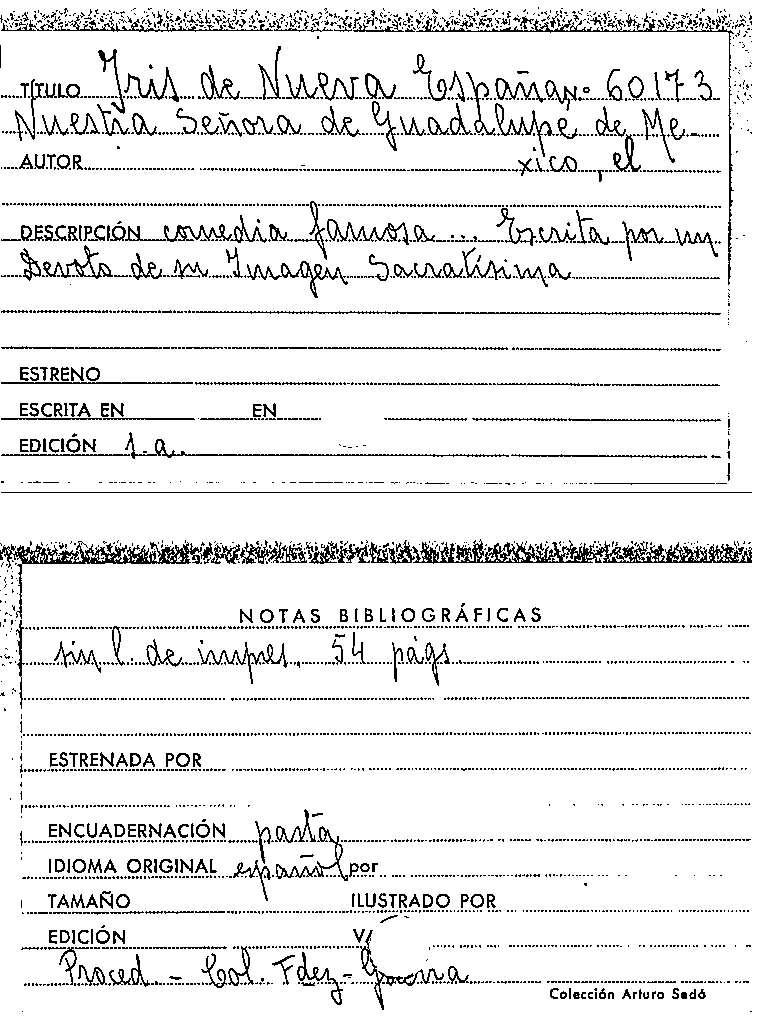 TÍTULO Iris de Nueva España, N.º 60173
Nuestra Señora de Guadalupe de Me-
AUTOR xico, el
DESCRIPCIÓN comedia famosa ... Escrita por un
Devoto de su Imagen Sacratísima
ESTRENO
ESCRITA EN EN
EDICIÓN s.a.
NOTAS BIBLIOGRÁFICAS
sin l. de impres. 54 págs.
ESTRENADA POR
ENCUADERNACIÓN pasta
IDIOMA ORIGINAL español por
TAMAÑO ILUSTRADO POR
EDICIÓN
Proced. - Col. Fdez-Guerra
Colección Arturo Sedó